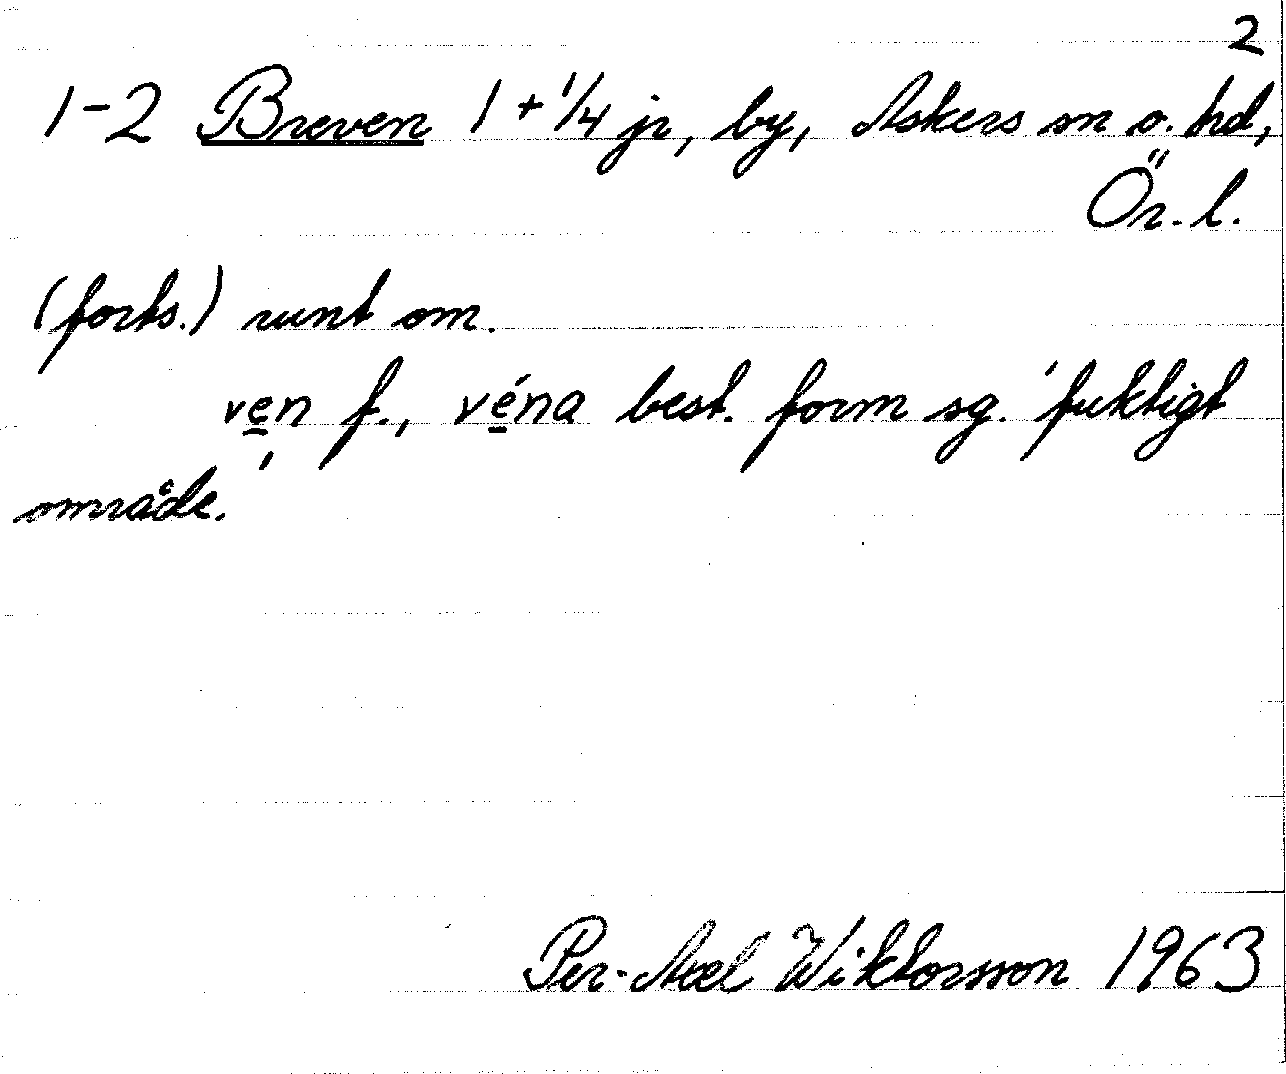 2
1-2 Breven 1 + 1/4 jr, by, Askers sn o. hd,
Ör. l.
(forts.) runt om.
ve̲n f., vé̲na best. form sg. 'fuktigt
område.'
Per-Axel Wiktorsson 1963